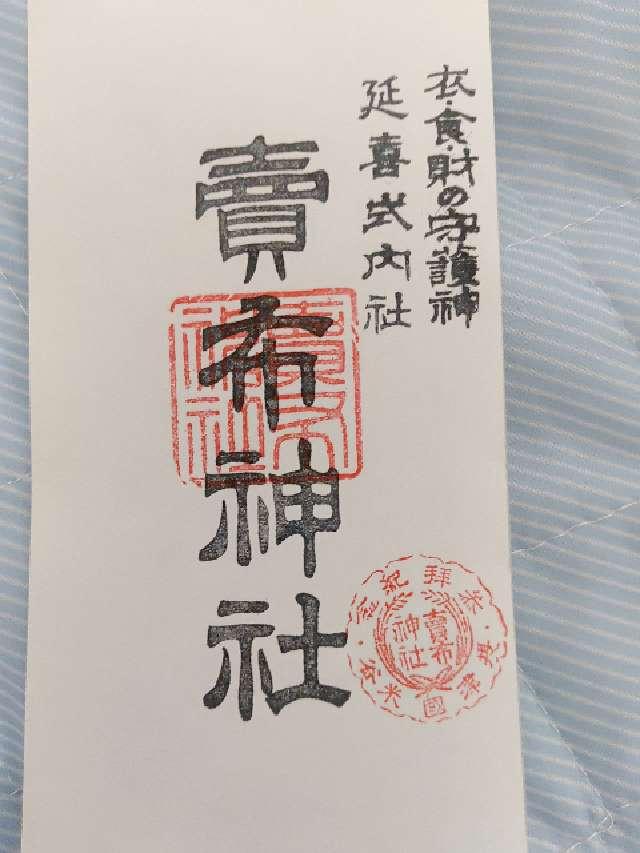 衣・食・財の守護神
延喜式内社
賣布神社
賣布神社
参拝紀念
摂津國米谷
賣布
神社